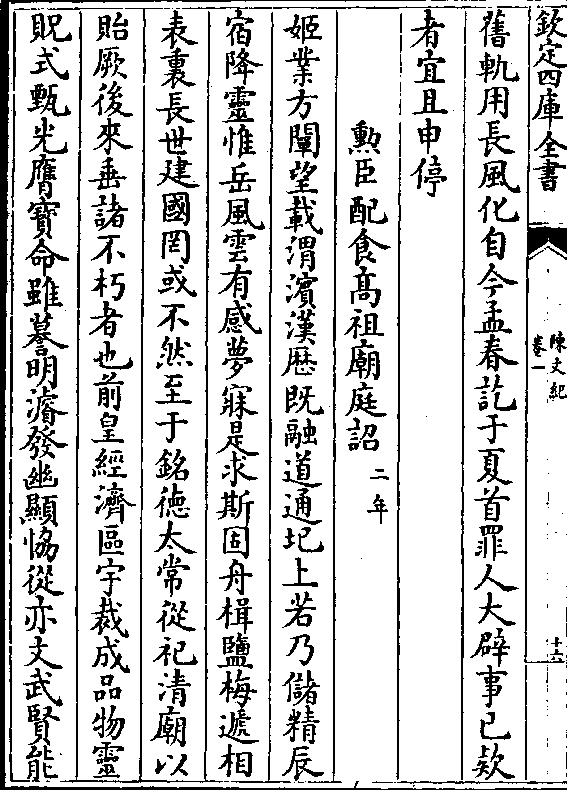 欽定四庫全書
陳文紀
卷一
十六
舊軌用長風化自今孟春訖于夏首罪人大辟事已欵
者宜且申停
勲臣配食髙祖廟庭詔二年
姬業方闡望載渭濱漢厯既融道通圯上若乃儲精辰
宿降靈惟岳風雲有感夢寐是求斯固舟楫鹽梅遞相
表裏長世建國罔或不然至于銘徳太常從祀清廟以
貽厥後來垂諸不朽者也前皇經濟區宇裁成品物靈
貺式甄光膺寶命雖謩明濬發幽顯恊從亦文武賢能